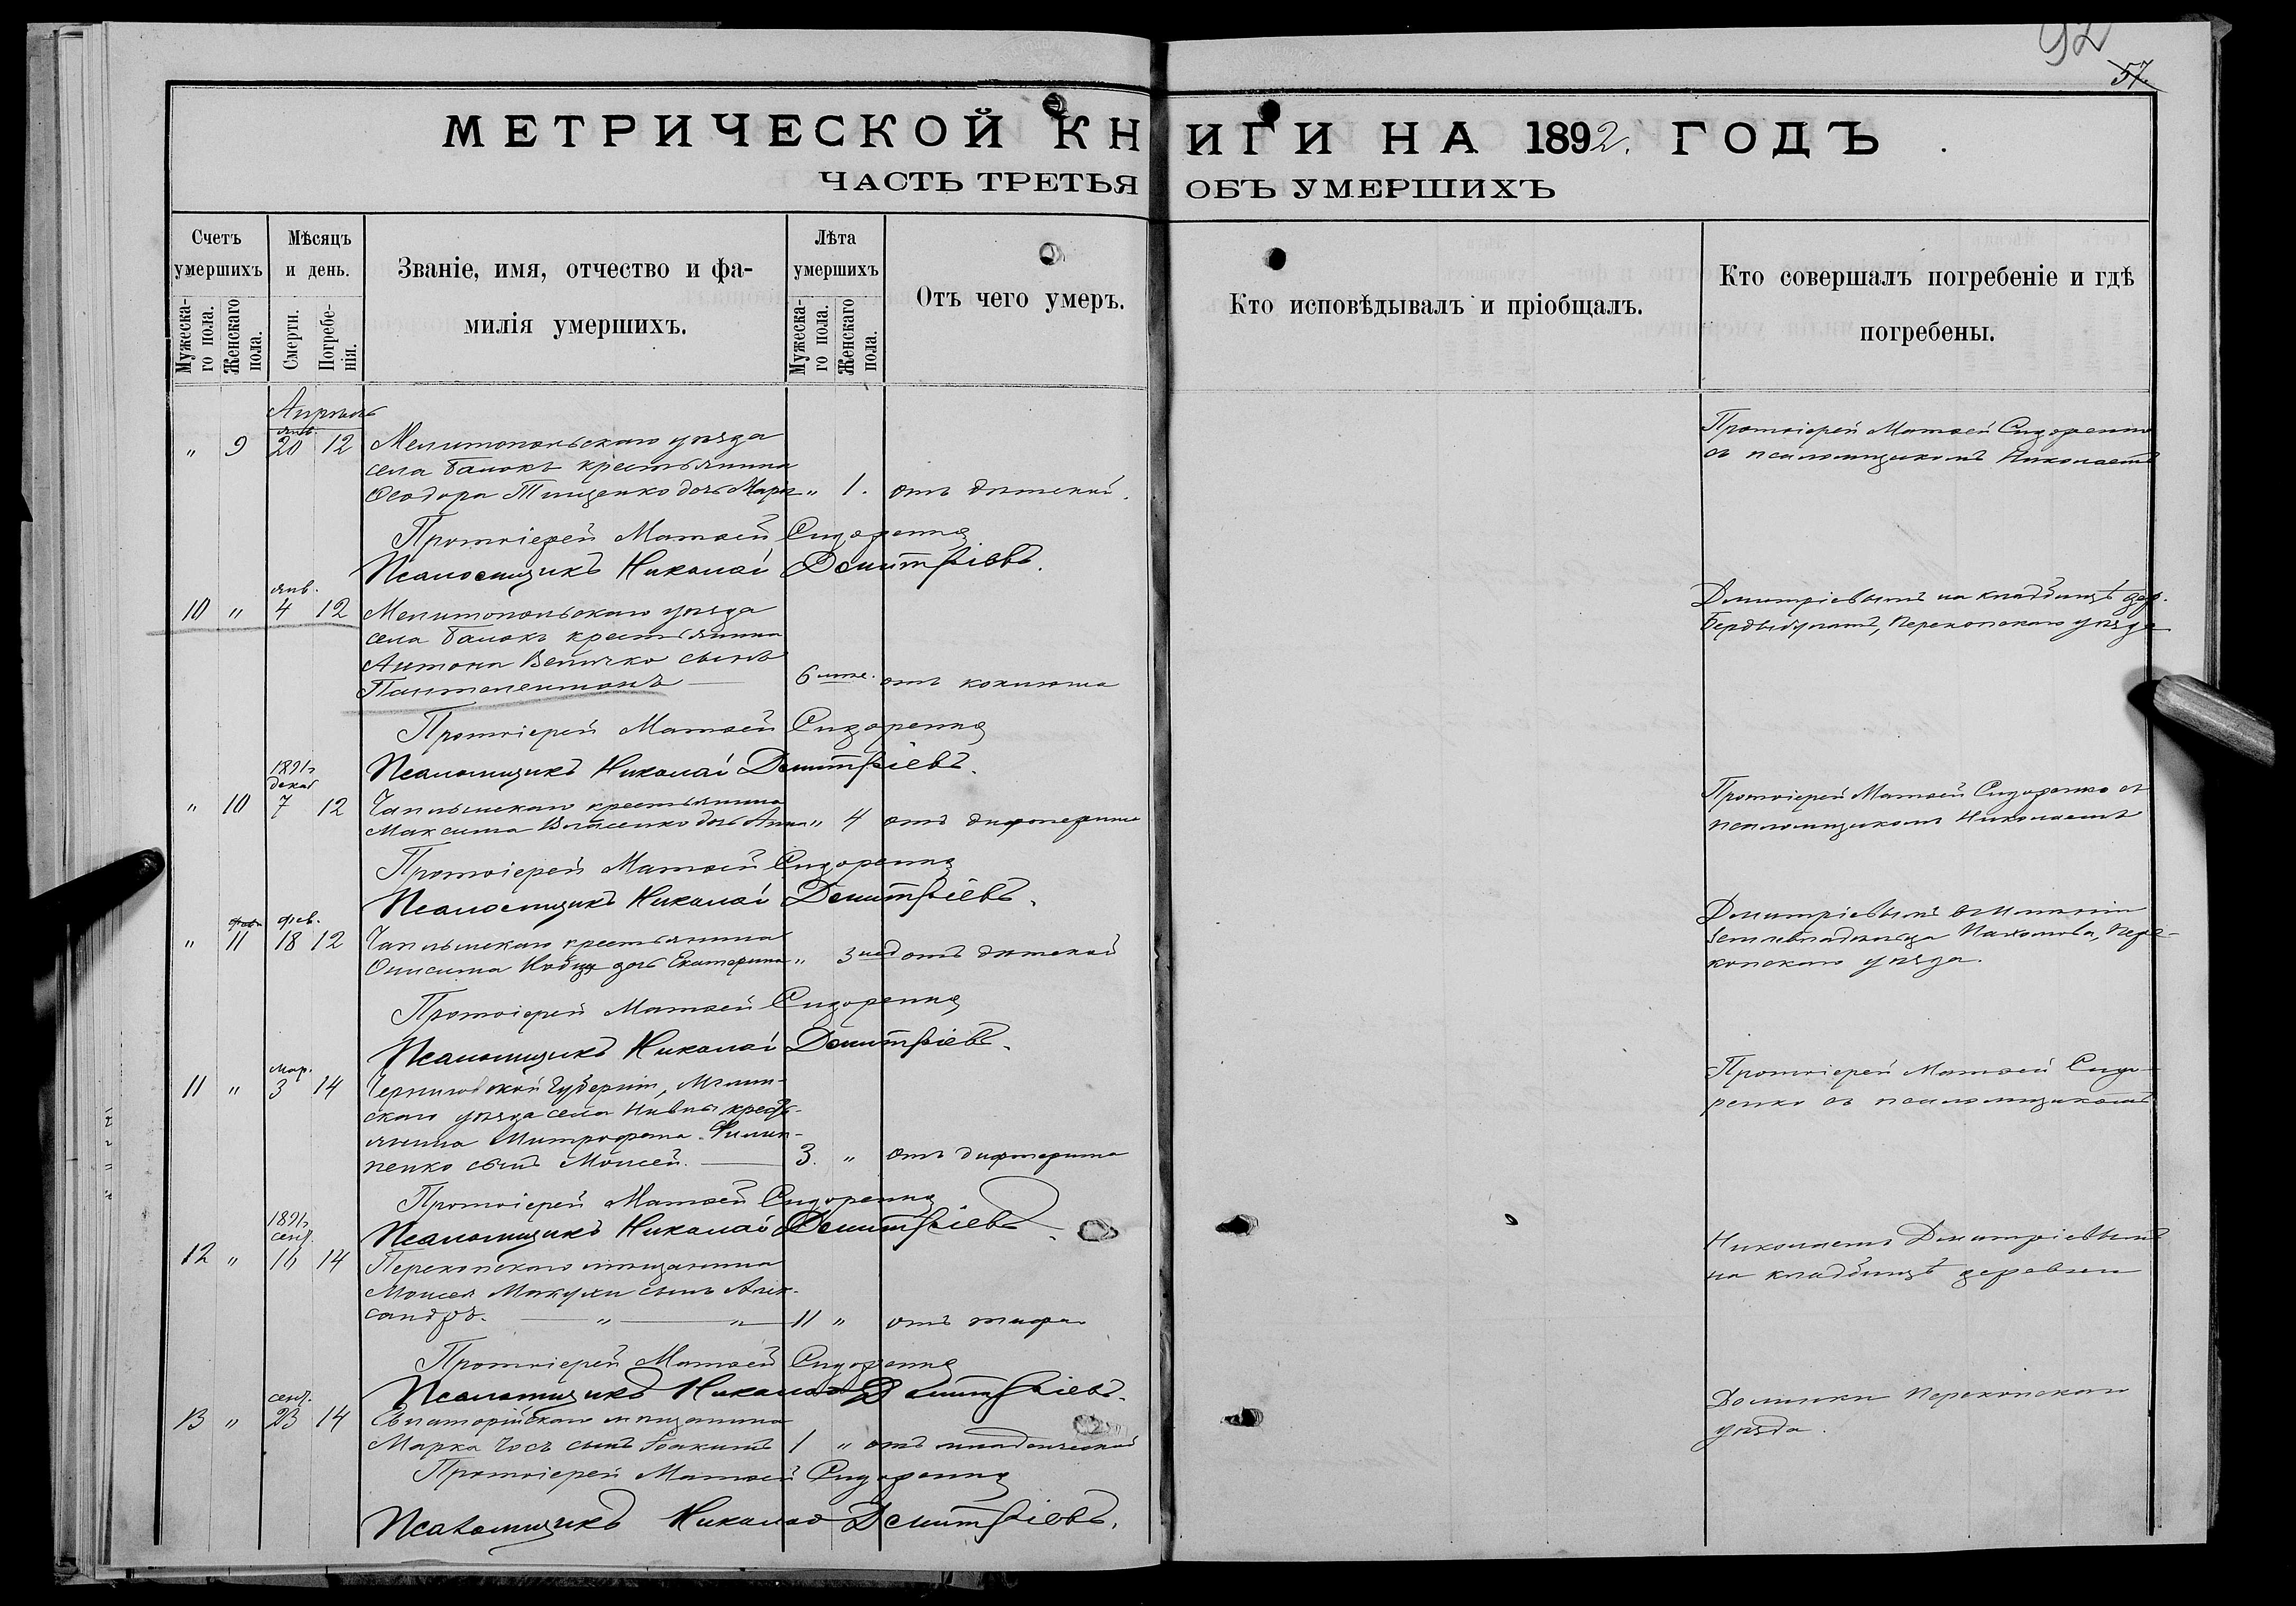 92
57.
МЕТРИЧЕСКОЙ КНИГИ НА 1892. ГОДЪ
ЧАСТЬ ТРЕТЬЯ ОБЪ УМЕРШИХЪ
Счетъ умершихъ
Мужескаго пола.
Женскаго пола.
Мѣсяцъ и день.
Смерти.
Погребенія.
Званіе, имя, отчество и фамилія умершихъ.
Лѣта умершихъ
Мужескаго пола.
Женскаго пола.
Отъ чего умеръ.
Кто исповѣдывалъ и пріобщалъ.
Кто совершалъ погребеніе и гдѣ погребены.
Апрѣль
янв.
" 9 20 12 Мелитопольскаго уѣзда
села Балокъ крестьянина
Ѳеодора Тищенко дочь " 1. отъ дѣтской.
Протоіерей Матѳей Сидоренко
съ псаломщикомъ Николаемъ
Протоіерей Матѳей Сидоренко
Псаломщикъ Николай Дмитріевъ.
янв.
10 " 4 12 Мелитопольскаго уѣзда
села Балокъ крестьянина
Антона Величко сынъ
Пантелеимонъ 6 отъ коклюша
Дмитріевымъ на кладбищѣ дер.
Перекопскаго уѣзда
Протоіерей Матѳей Сидоренко
Псаломщикъ Николай Дмитріевъ.
1891г.
декаб
" 10 7 12 Чаплынскаго крестьянина
Максима Власенко дочь Анна " 4 отъ дифтерита
Протоіерей Матѳей Сидоренко съ
псаломщикомъ Николаемъ
Протоіерей Матѳей Сидоренко
Псаломщикъ Николай Дмитріевъ.
фев.
" 11 18 12 Чаплынскаго крестьянина
Онисима дочь Екатерина " 3 нед отъ дѣтской
Дмитріевымъ въ имѣніи
землевладѣльца Пахомова, Пере-
копскаго уѣзда.
Протоіерей Матѳей Сидоренко
Псаломщикъ Николай Дмитріевъ.
мар.
11 " 3 14 Черниговской губерніи, Мглин-
скаго уѣзда села Нивны кресть-
янина Митрофана Филип-
пенко сынъ Моисей. 3. " отъ дифтерита
Протоіерей Матѳей Сидо-
ренко съ псаломщикомъ
Протоіерей Матѳей Сидоренко
Псаломщикъ Николай Дмитріевъ.
1891г.
сент.
12 " 16 14 Перекопскаго мѣщанина
Моисея Макухи сынъ Алек-
сандръ. " " 11 " отъ тифа
Николаемъ Дмитріевымъ
на кладбищѣ деревни
Протоіерей Матѳей Сидоренко
Псаломщикъ Николай Дмитріевъ.
сент.
13 " 23 14 Евпаторійскаго мѣщанина
Марка сынъ Іоакимъ 1 " отъ младенческой
Долинки Перекопскаго
уѣзда.
Протоіерей Матѳей Сидоренко
Псаломщикъ Николай Дмитріевъ.